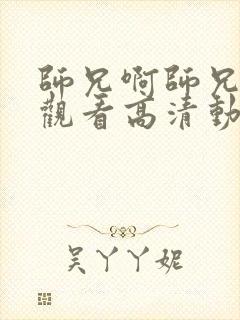 師兄啊師兄
觀看高清動
吴丫丫妮